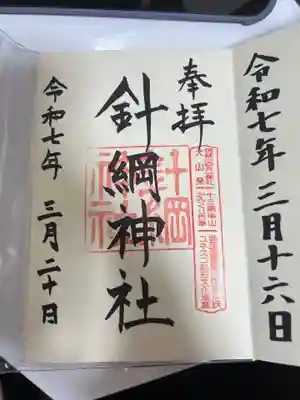 令和七年 三月十六日
奉拝
針綱神社
令和七年 三月二十日